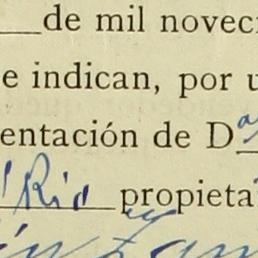 de mil noveci
e indican, por u
entación de D
l Río propieta